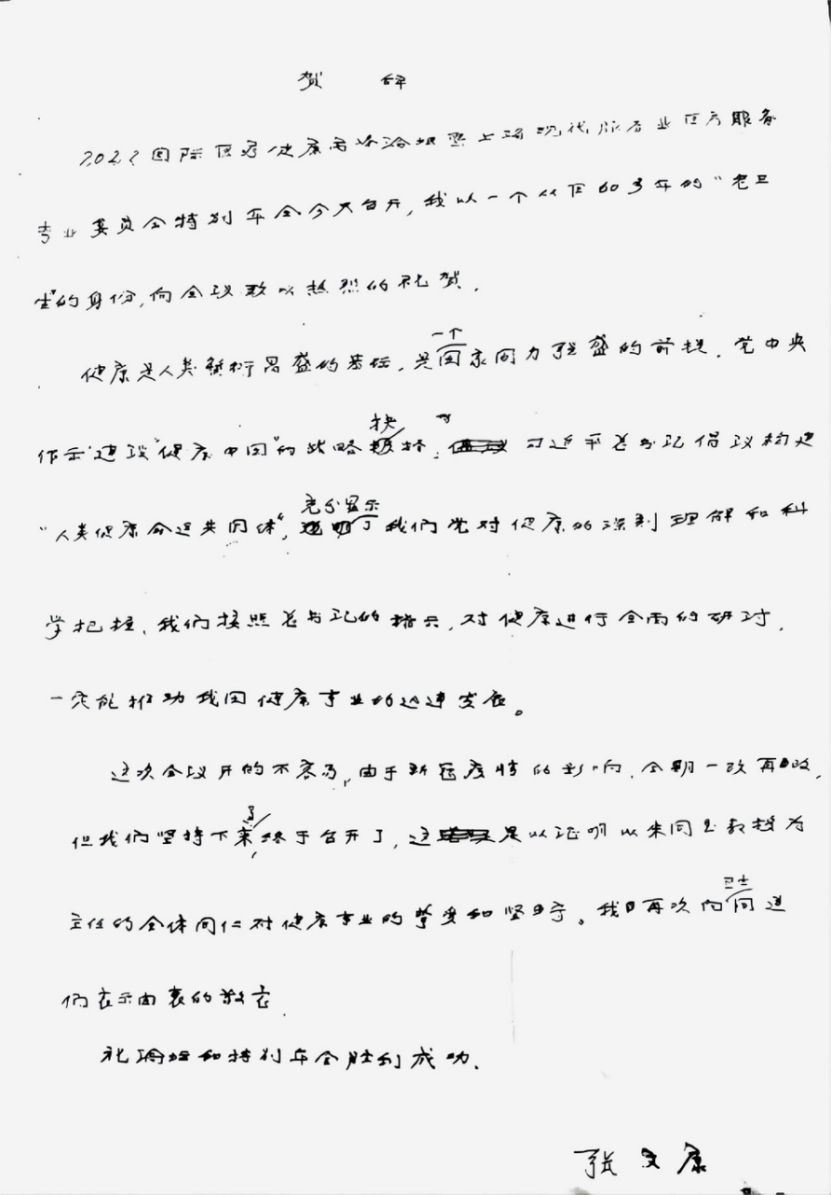 贺 辞
2022国际医疗健康高峰论坛暨上海现代服务业医疗服务
专业委员会特别年会今天召开,我以一个从医60多年的“老卫
生”的身份,向会议致以热烈的祝贺.
健康是人类繁衍昌盛的基石,是一个国家国力强盛的前提.党中央
作出“建设‘健康中国’”的战略抉择,习近平总书记倡议构建
“人类健康命运共同体”,充分显示了我们党对健康的深刻理解和科
学把握.我们按照总书记的指示,对健康进行全面的研讨,
一定能推动我国健康事业的迅速发展。
这次会议开的不容易,由于新冠疫情的影响,会期一改再改,
但我们坚持下来了,终于召开了,这足以证明以朱同玉教授为
主任的全体同仁对健康事业的挚爱和坚守。我再次向卫生同道
们表示由衷的敬意.
祝论坛和特别年会胜利成功.
张文康